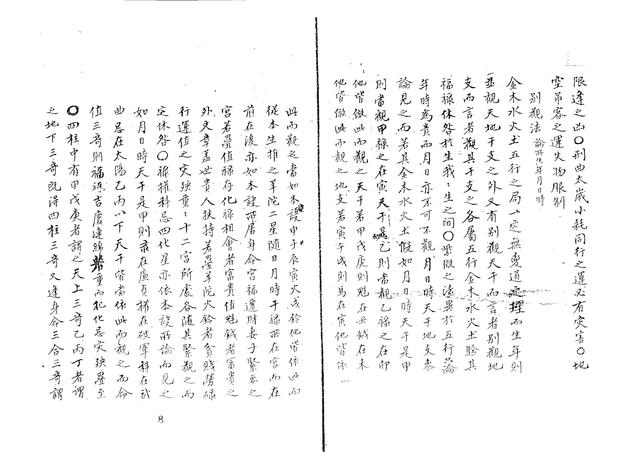 限逢之凶〇刑曲太歲小耗同行之運必有灾害〇地
空吊客之運失物服制
別觀法 論所㳄年月日時
金木水火土五行之局一定無変道理而生年則
並觀天地干支之外又有別觀天干而言者別觀地
支而言者觀其干支之各屬五行金木水火土驗其
福祿休咎於生我我生之間〇紫微之法異於五行論
年時為貴而月日亦不可不觀月日時天干地支參
論見之而若其金木水火土假如月日時天干是甲
則當觀甲祿之在寅天干是乙則當觀乙祿之在卯
他皆做此而觀之天干甲戊庚則魁在丑鉞在未
他皆做此而觀之地支若寅午戌則馬在寅他皆做
此而觀之當如本設申子辰寅火戌鈴他皆做此而
從本生推之羊陀二星隨日月時干祿所在宮而在
前在後亦如本設所居身命宮福遷財妻子緊要之
宮若疊值祿存化祿相會者富貴值魁鉞者富貴之
外文章蓋世貴人扶持若疊羊陀火鈴者貧賤勞碌
行運值之灾殃重重十二宮所處各隨其干所屬而
定休咎〇祿權科忌四化星亦依本設所論而見之
如月日時天干是甲則祿在廉貞權在破軍科在武
曲忌在太陽乙丙以下天干皆當依此而觀之而命
值三奇則福源吉慶連綿若重而犯化忌灾殃疊至
〇四柱中有甲戊庚者謂之天上三奇乙丙丁者謂
之地下三奇既得四柱三奇又逢身命三合三奇謂
8